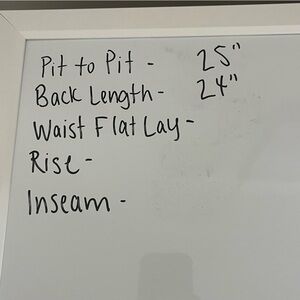 Pit to Pit - 25"
Back Length - 24"
Waist Flat Lay -
Rise -
Inseam -